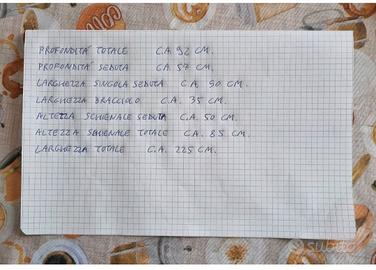 PROFONDITA' TOTALE C.A. 92 CM.
PROFONDITA' SEDUTA C.A. 57 CM.
LARGHEZZA SINGOLA SEDUTA C.A. 90 CM.
LARGHEZZA BRACCIOLO C.A. 35 CM.
ALTEZZA SCHIENALE SEDUTA C.A. 50 CM.
ALTEZZA SCHIENALE TOTALE C.A. 85 CM.
LARGHEZZA TOTALE C.A. 225 CM.
subito